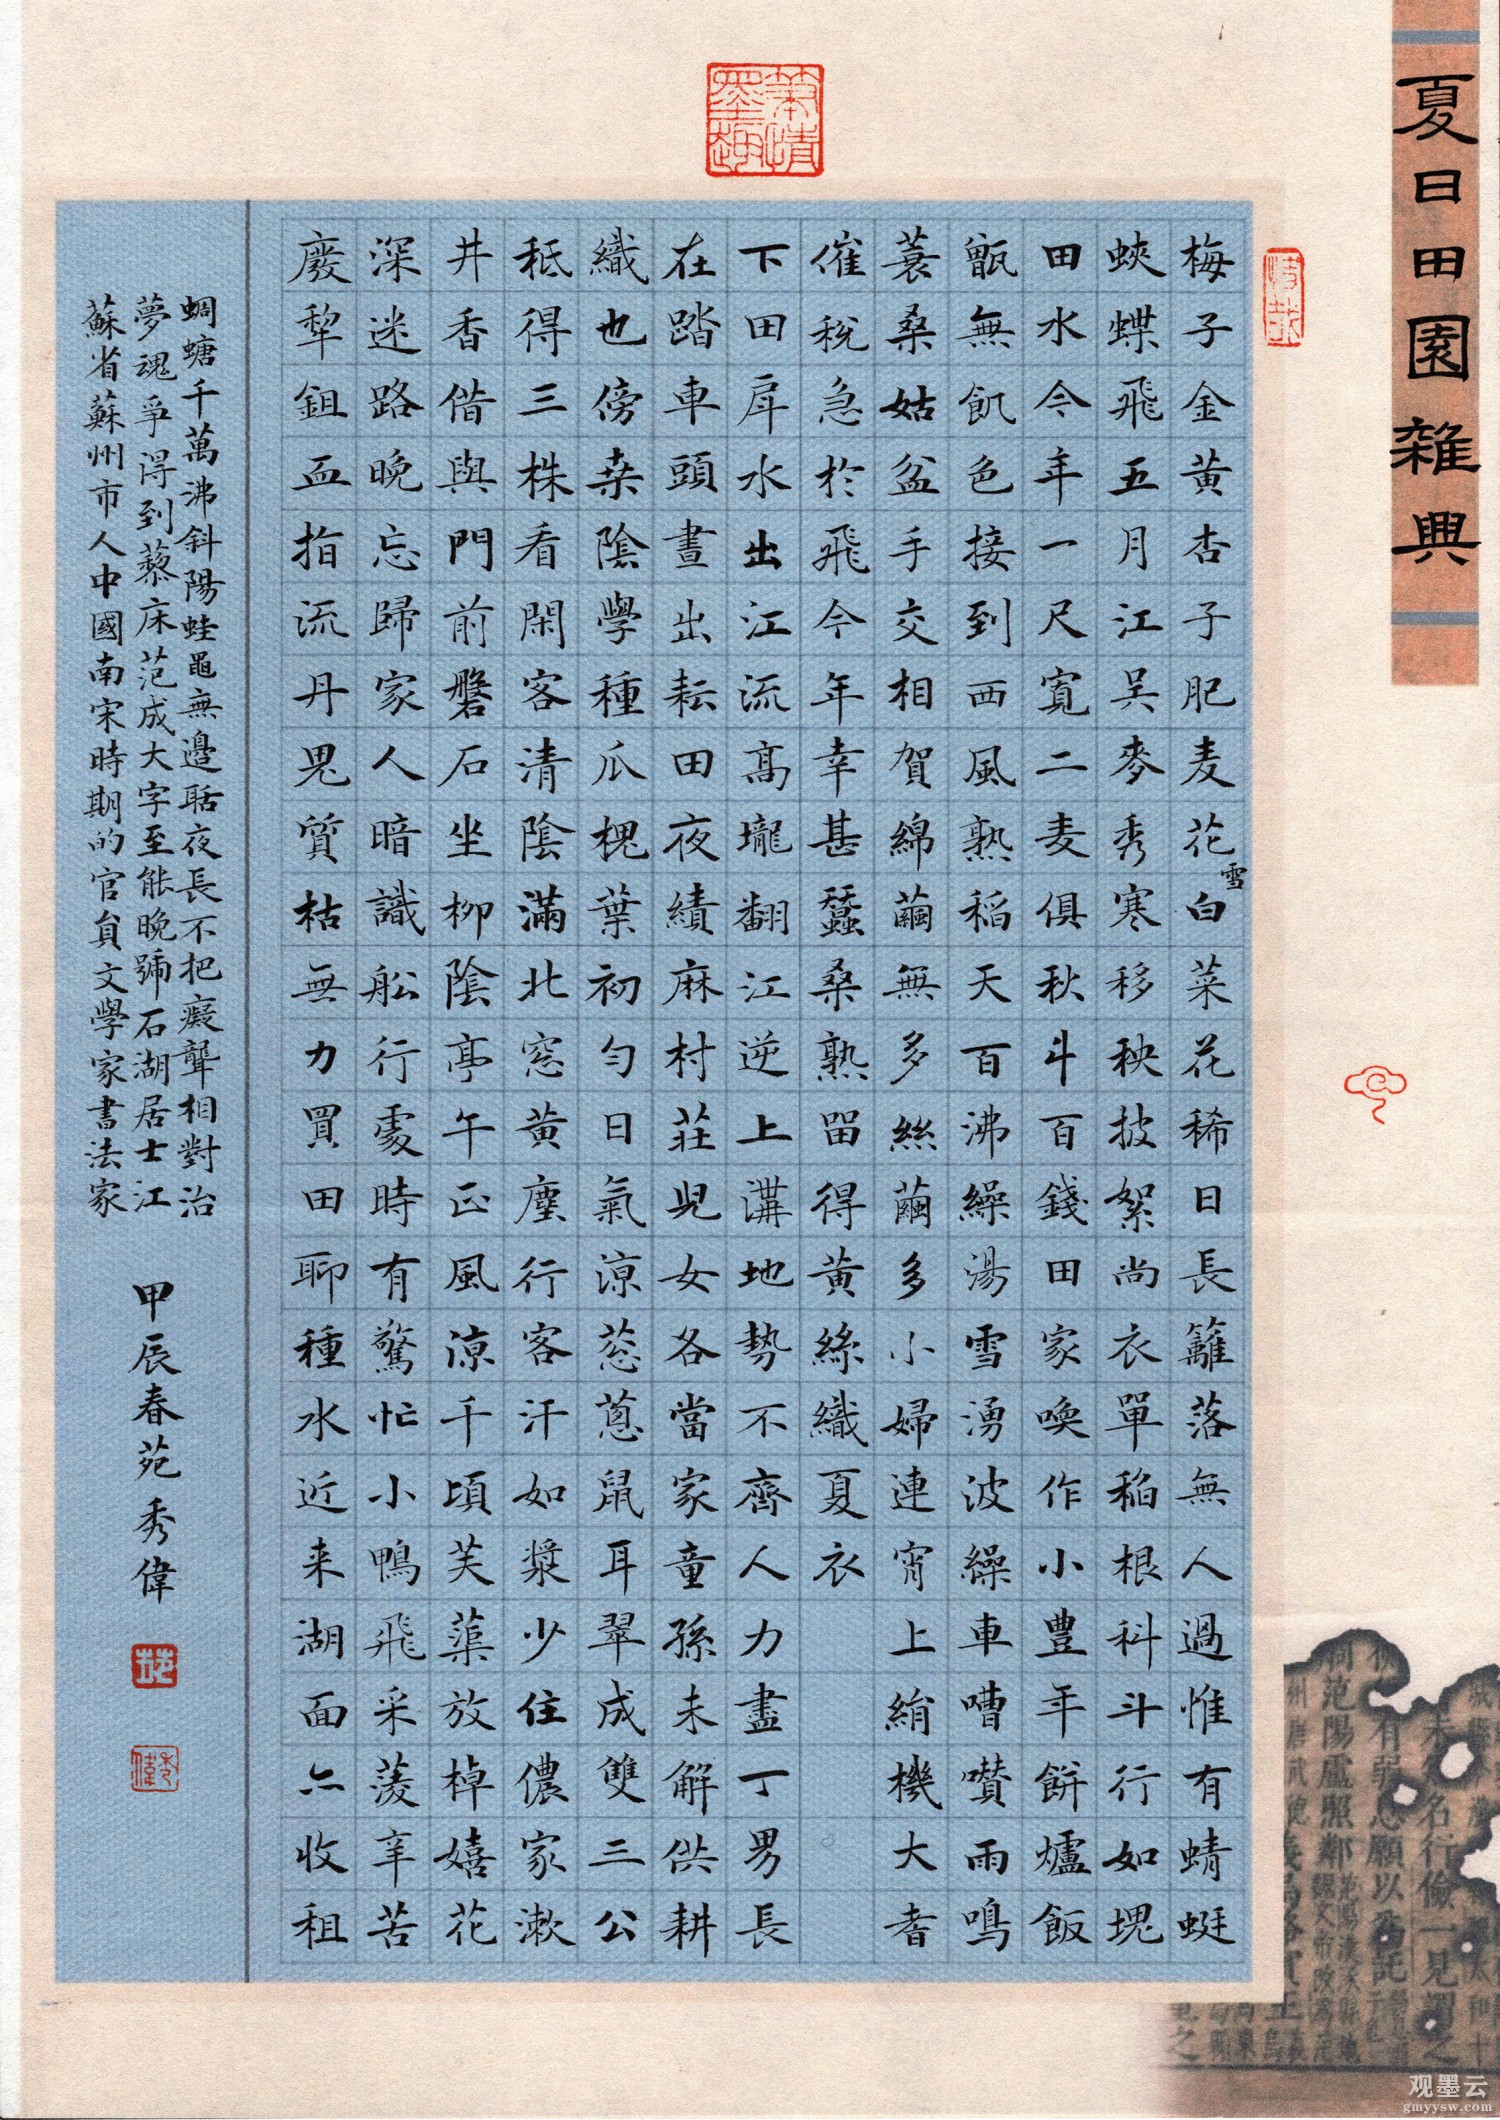 夏日田園雜興
梅子金黄杏子肥麦花雪白菜花稀日長籬落無人過惟有蜻蜓
蛺蝶飛五月江吴麥秀寒移秧披絮尚衣單稻根科斗行如塊
田水今年一尺寬二麦俱秋斗百錢田家喚作小豊年餅爐飯
甑無飢色接到西風熟稻天百沸繰湯雪湧波繰車嘈囋雨鳴
蓑桑姑盆手交相賀綿繭無多絲繭多小婦連宵上絹機大耆
催税急於飛今年幸甚蠶桑熟留得黄絲織夏衣
下田戽水出江流高壠翻江逆上溝地勢不齊人力盡丁男長
在踏車頭晝出耘田夜績麻村莊兒女各當家童孫未解供耕
織也傍桒陰學種瓜槐葉初匀日氣凉葱蔥鼠耳翠成雙三公
秖得三株看閑客清陰滿北窓黄塵行客汗如漿少住儂家漱
井香借與門前磐石坐柳陰亭午正風凉千頃芙蕖放棹嬉花
深迷路晚忘歸家人暗識船行處時有驚忙小鴨飛采菱辛苦
廢犂鉏血指流丹鬼質枯無力買田聊種水近来湖面亦收租
蜩螗千萬沸斜陽蛙黽無邊聒夜長不把癡聾相對治
夢魂爭得到藜床范成大字至能晚號石湖居士江
蘇省蘇州市人中國南宋時期的官員文學家書法家
甲辰春苑秀偉
筆情墨趣
观墨云
gmyysw.com